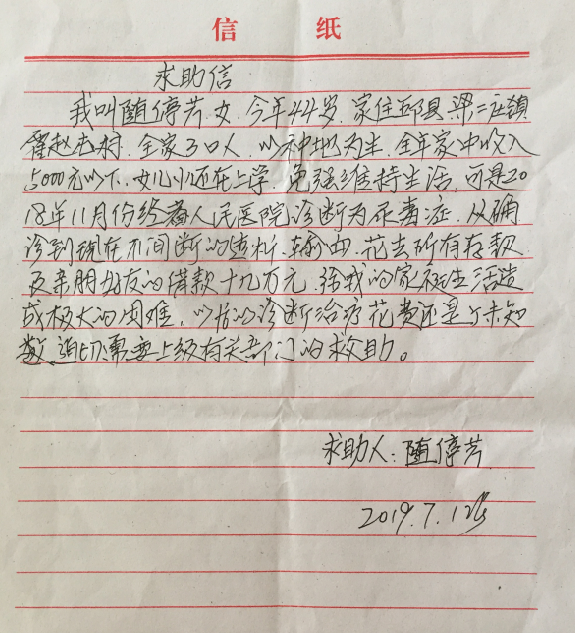 信 纸
求助信
我叫随停芳.女.今年44岁.家住邱县梁二庄镇
霍赵屯村.全家3口人.以种地为生.全年家中收入
5000元以下.女儿小还在上学.免强维持生活.可是20
18年11月份经省人民医院诊断为尿毒症.从确
诊到现在不间断的透析.输血.花去所有存款
及亲朋好友的借款十九万元.给我的家庭生活造
成极大的困难.以后的诊断治疗花费还是个未知
数.迫切需要上级有关部门的救助。
求助人:随停芳
2019.7.12